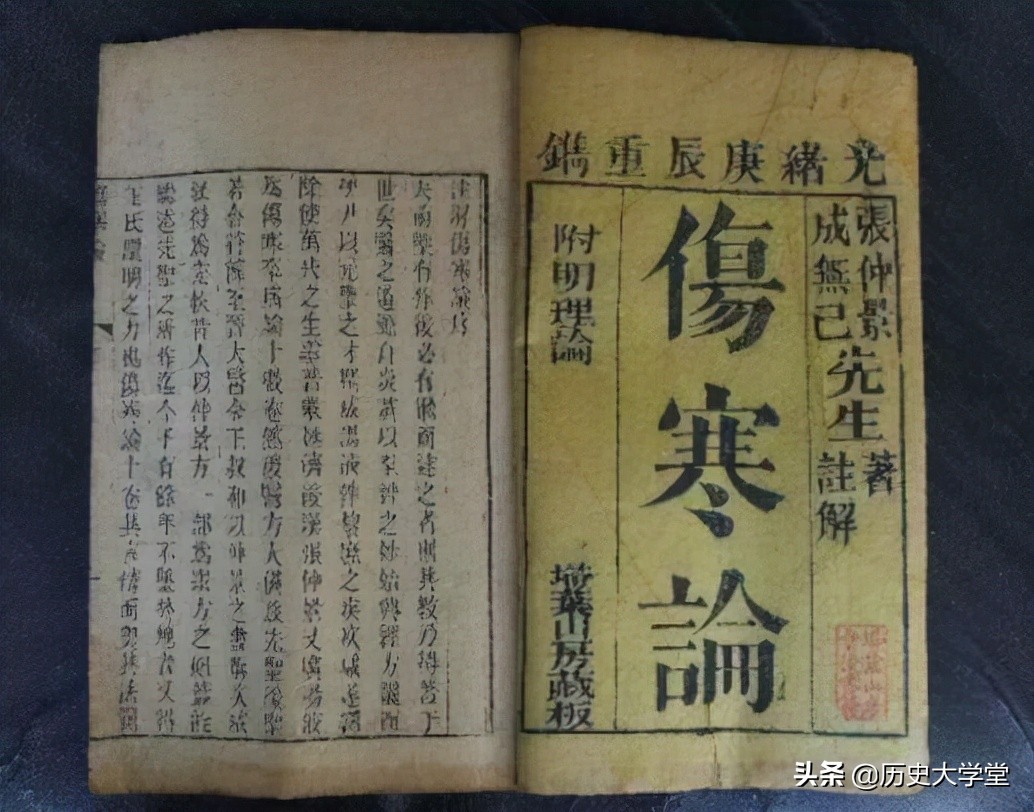 光緒庚辰重鐫
張仲景
成無己
先生
著
註解
傷寒論
附明理論
埽葉山房藏板
註解傷寒論序
夫前聖有作後必有繼而述之者則其教乃得著于
世矣醫之道源自炎黃以至神之妙始興經方繼而
伊尹以元聖之才撰成湯液俾黎庶之疾疢咸遂蠲
除使萬代之生靈普蒙拯濟後漢張仲景又廣湯液
為傷寒卒病論十數卷然後醫方大備茲先聖後聖
若合符節至晉太醫令王叔和以仲景之書撰次成
敘得為完帙昔人以仲景方一部為眾方之祖蓋能
繼述先聖之所作迄今千有餘年不墜於地者又得
王氏闡明之力也傷寒論十卷其言精而奧其法簡
头条 @历史大学堂